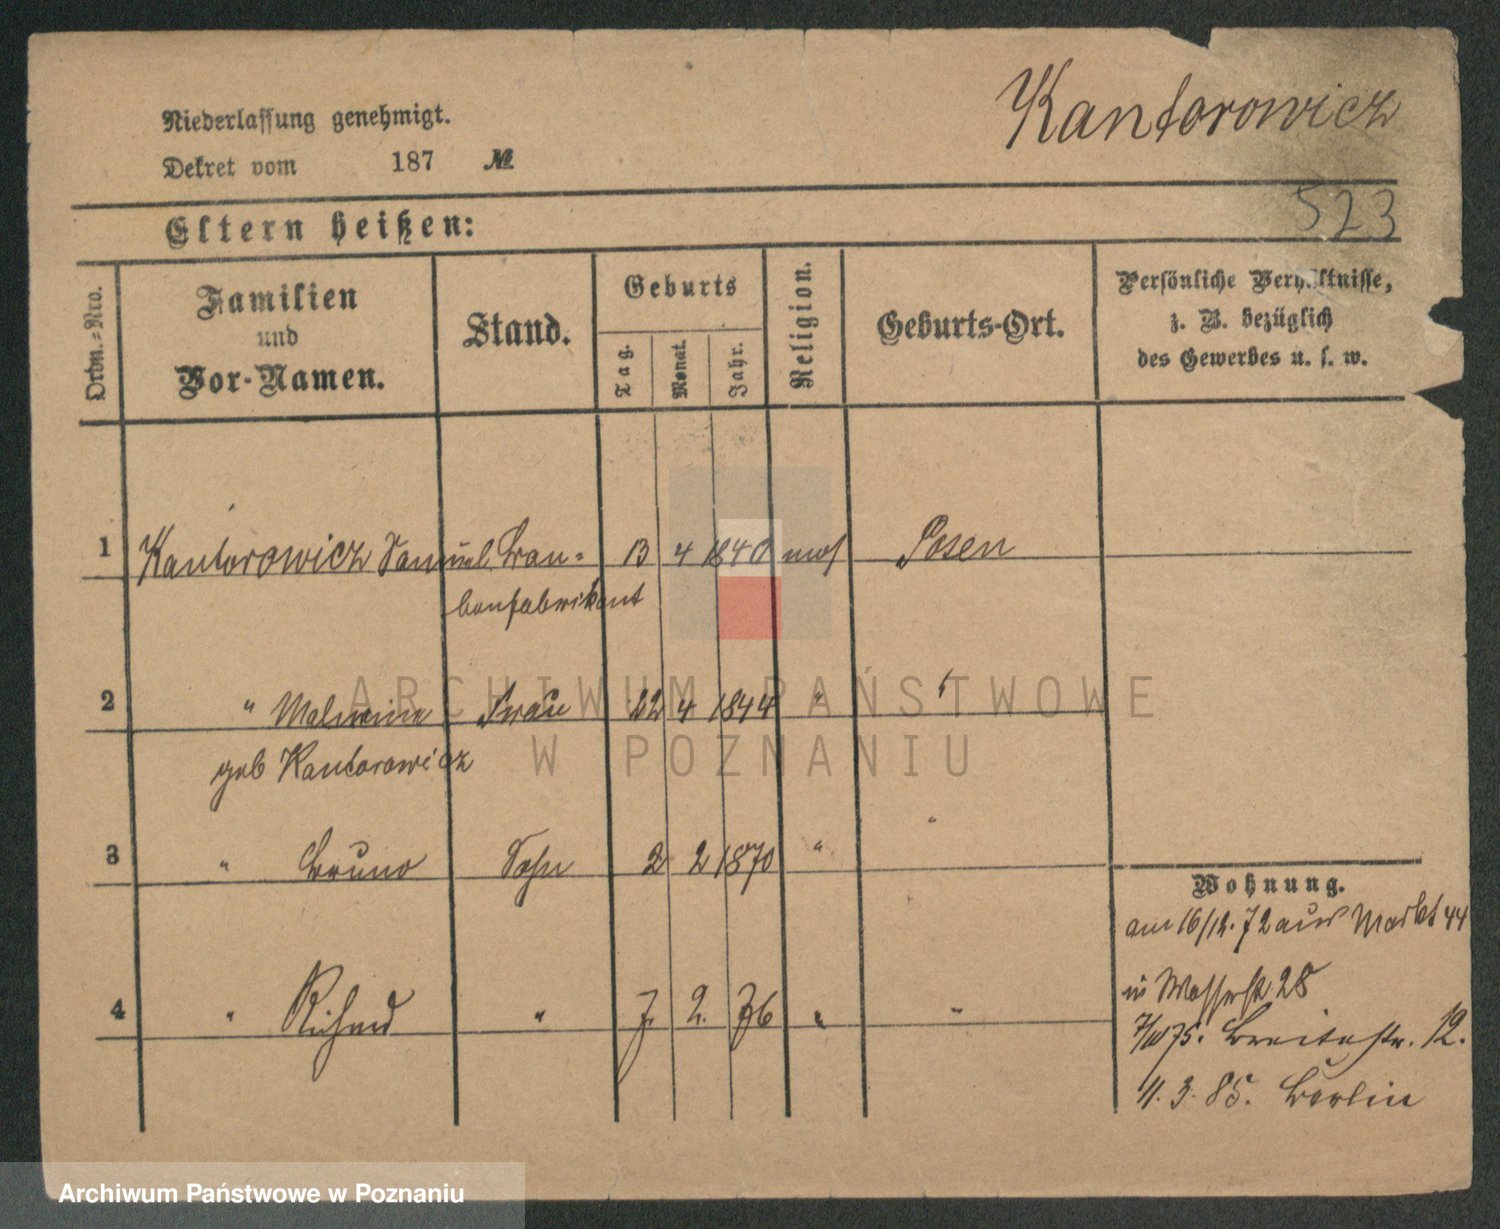 Kantorowicz
Niederlassung genehmigt.
Dekret vom 187 №
523
Eltern heißen:
Ordn.-Nro.
Familien
und
Vor-Namen.
Stand.
Geburts
Tag.
Monat.
Jahr.
Religion.
Geburts-Ort.
Persönliche Verhältnisse,
z. B. bezüglich
des Gewerbes u. s. w.
1 Kantorowicz Samuel 13 4 1840 mos Posen
2 " Malwine Frau 22 4 1844 " "
geb Kantorowicz
3 " Bruno Sohn 2 2 1870 " "
4 " Richard " 7. 2. 76 " "
Wohnung.
am 16/12. 72 aus Markt 44
in Wasserstr 28
75. Breitestr. 12.
11. 3. 85. Berlin
ARCHIWUM PAŃSTWOWE
W POZNANIU
Archiwum Państwowe w Poznaniu